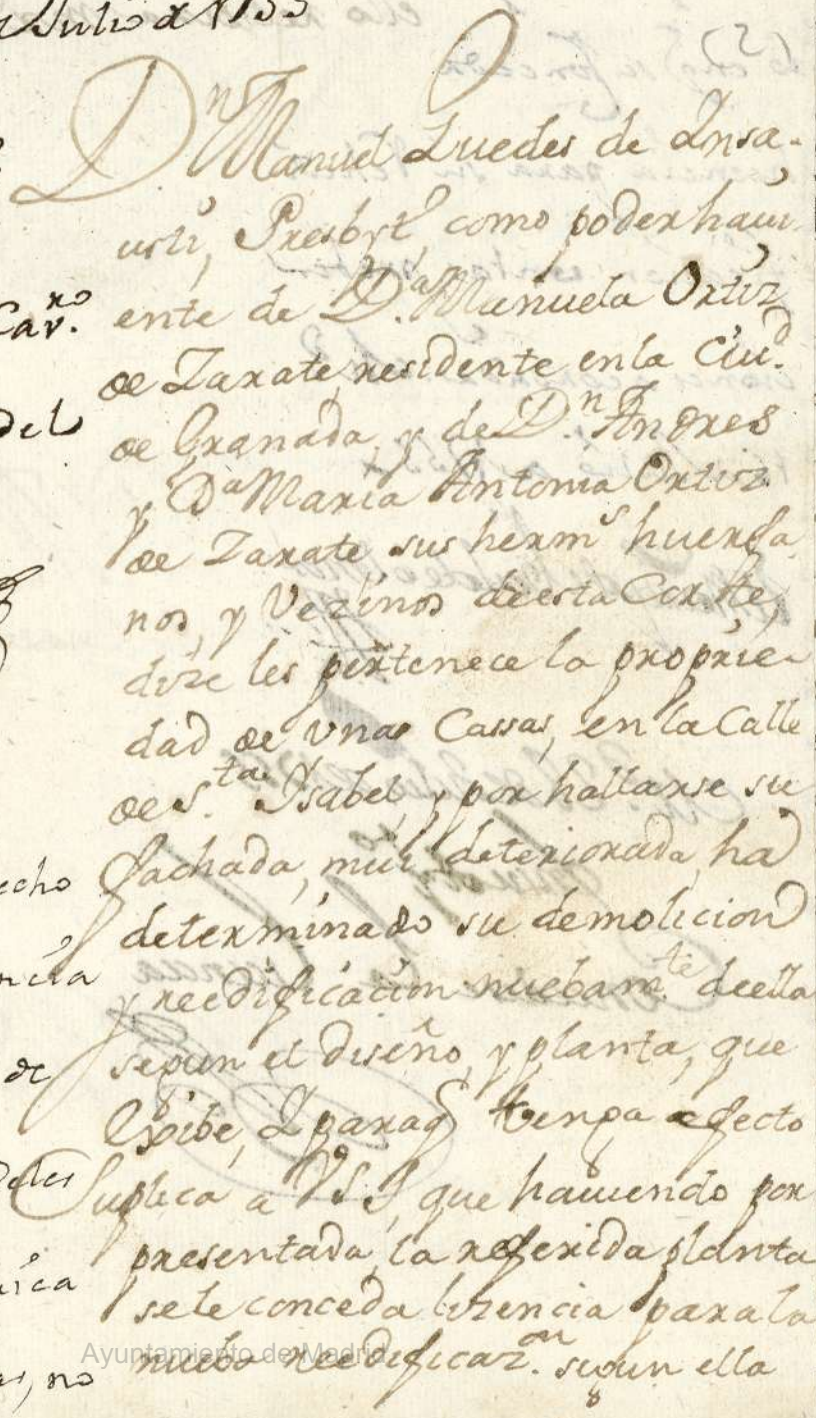 Julio de 1753
Dn Manuel Luedes de Insa-
usti, Presbyt.o como poder havi-
ente de D.a Manuela Ortiz
de Zarate, residente en la Ciu.d
de Granada, y de D.n Andres
y D.a Maria Antonia Ortiz
de Zarate sus herm.s huerfa
nos, y Vezinos de esta Corte,
dize les pertenece la proprie-
dad de vnas Cassas, en la Calle
de S.ta Ysabel, y por hallarse su
fachada, mui deteriorada, ha
determinado su demolicion
y reedificacion nuebam.te de ella
segun el diseño, y planta, que
Exibe, Y paraq tenga efecto
Suplica a VSI, que haviendo por
presentada, la referida planta
se le conceda lizencia para la
nueba reedificaz.on segun ella
Cav.ro
del
echo
ncia
de
sica
no
Ayuntamiento de Madrid